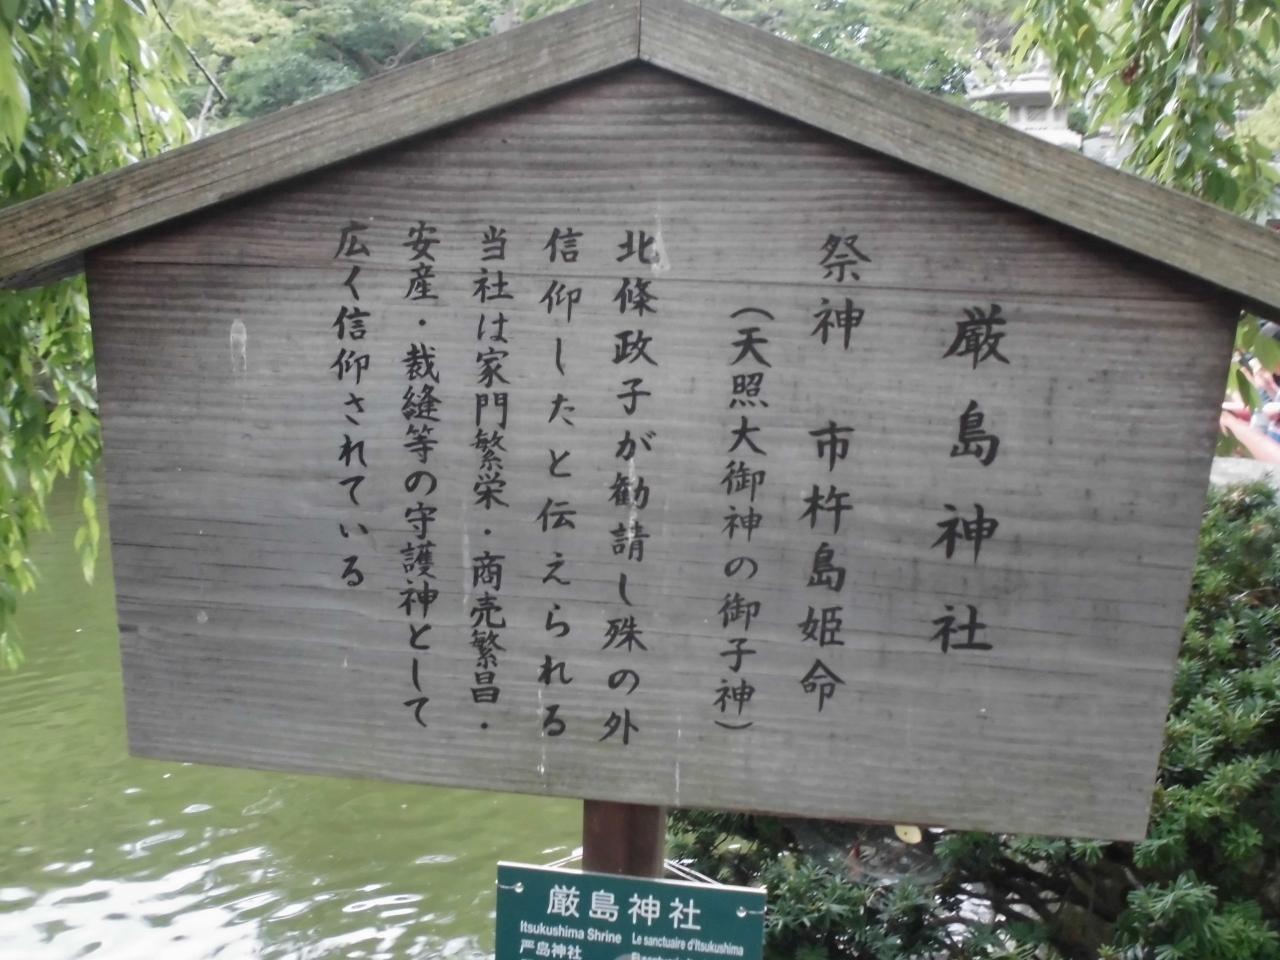 厳島神社
祭神 市杵島姫命
(天照大御神の御子神)
北條政子が勧請し殊の外
信仰したと伝えられる
当社は家門繁栄・商売繁昌・
安産・裁縫等の守護神として
広く信仰されている
厳島神社
Itsukushima Shrine Le sanctuaire d'Itsukushima
严岛神社